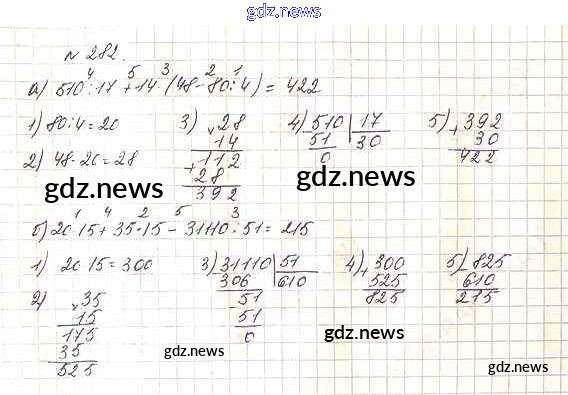 gdz.news
№ 282.
4 5 3 2 1
а) 510:17 + 14·(48-80:4) = 422
1) 80:4=20
2) 48-20=28
3) × 28
14
+ 112
28
392
4) 510 | 17
51 30
0
5) + 392
30
422
gdz.news
gdz.news
1 4 2 5 3
б) 20·15 + 35·15 - 31110:51 = 215
1) 20·15=300
2) × 35
15
175
35
525
3) 31110 | 51
306 610
51
51
0
4) + 300
525
825
5) - 825
610
215
gdz.news
gdz.news
gdz.news